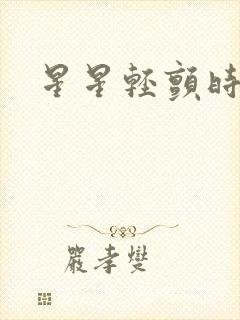 星星輕顫時
嚴孝燮